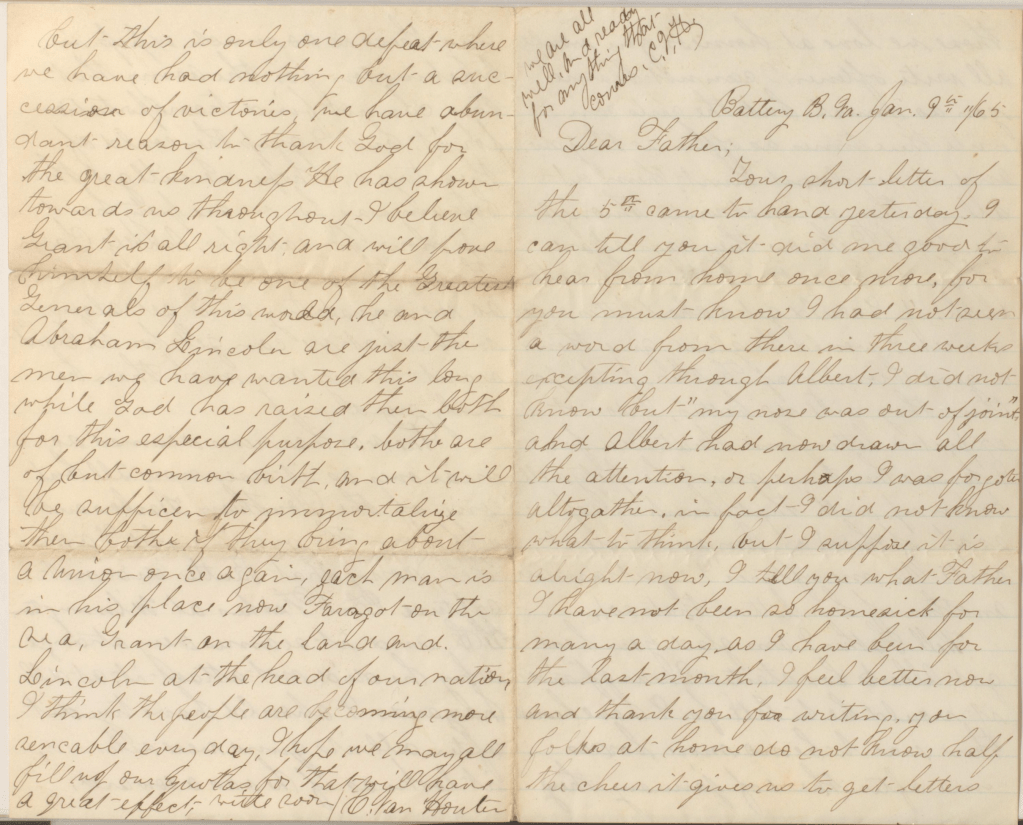 we are all
well, and ready
for anything that
comes, C.
Battery B. Va. Jan. 9th /65
Dear Father;
Your short letter of
the 5th came to hand yesterday. I
can tell you it did me good to
hear from home once more, for
you must know I had not seen
a word from there in three weeks
excepting through Albert. I did not
know but "my nose was out of joint"
and Albert had now drawn all
the attention, or perhaps I was forgoten
altogather. in fact I did not know
what to think, but I suppose it is
alright now, I tell you what Father
I have not been so homesick for
many a day as I have been for
the last month, I feel better now
and thank you for writing, you
folks at home do not know half
the cheer it gives us to get letters
but this is only one defeat where
we have had nothing but a suc-
cession of victories, we have abun-
dant reason to thank God for
the great kindness He has shown
towards us throughout I believe
Grant is all right and will prove
himself to be one of the Greatest
Generals of this world, he and
Abraham Lincoln are just the
men we have wanted this long
while God has raised them both
for this especial purpose. bothe are
of but common birth, and it will
be sufficen to immortalize
them bothe if they bring about
a Union once again, each man is
in his place now Faragot on the
sea, Grant on the land and.
Lincoln at the head of our nation,
I think the people are becoming more
sencable every day, I hope we may all
fill up our quotas for that will have
a great effect, write soon C. Van Houten